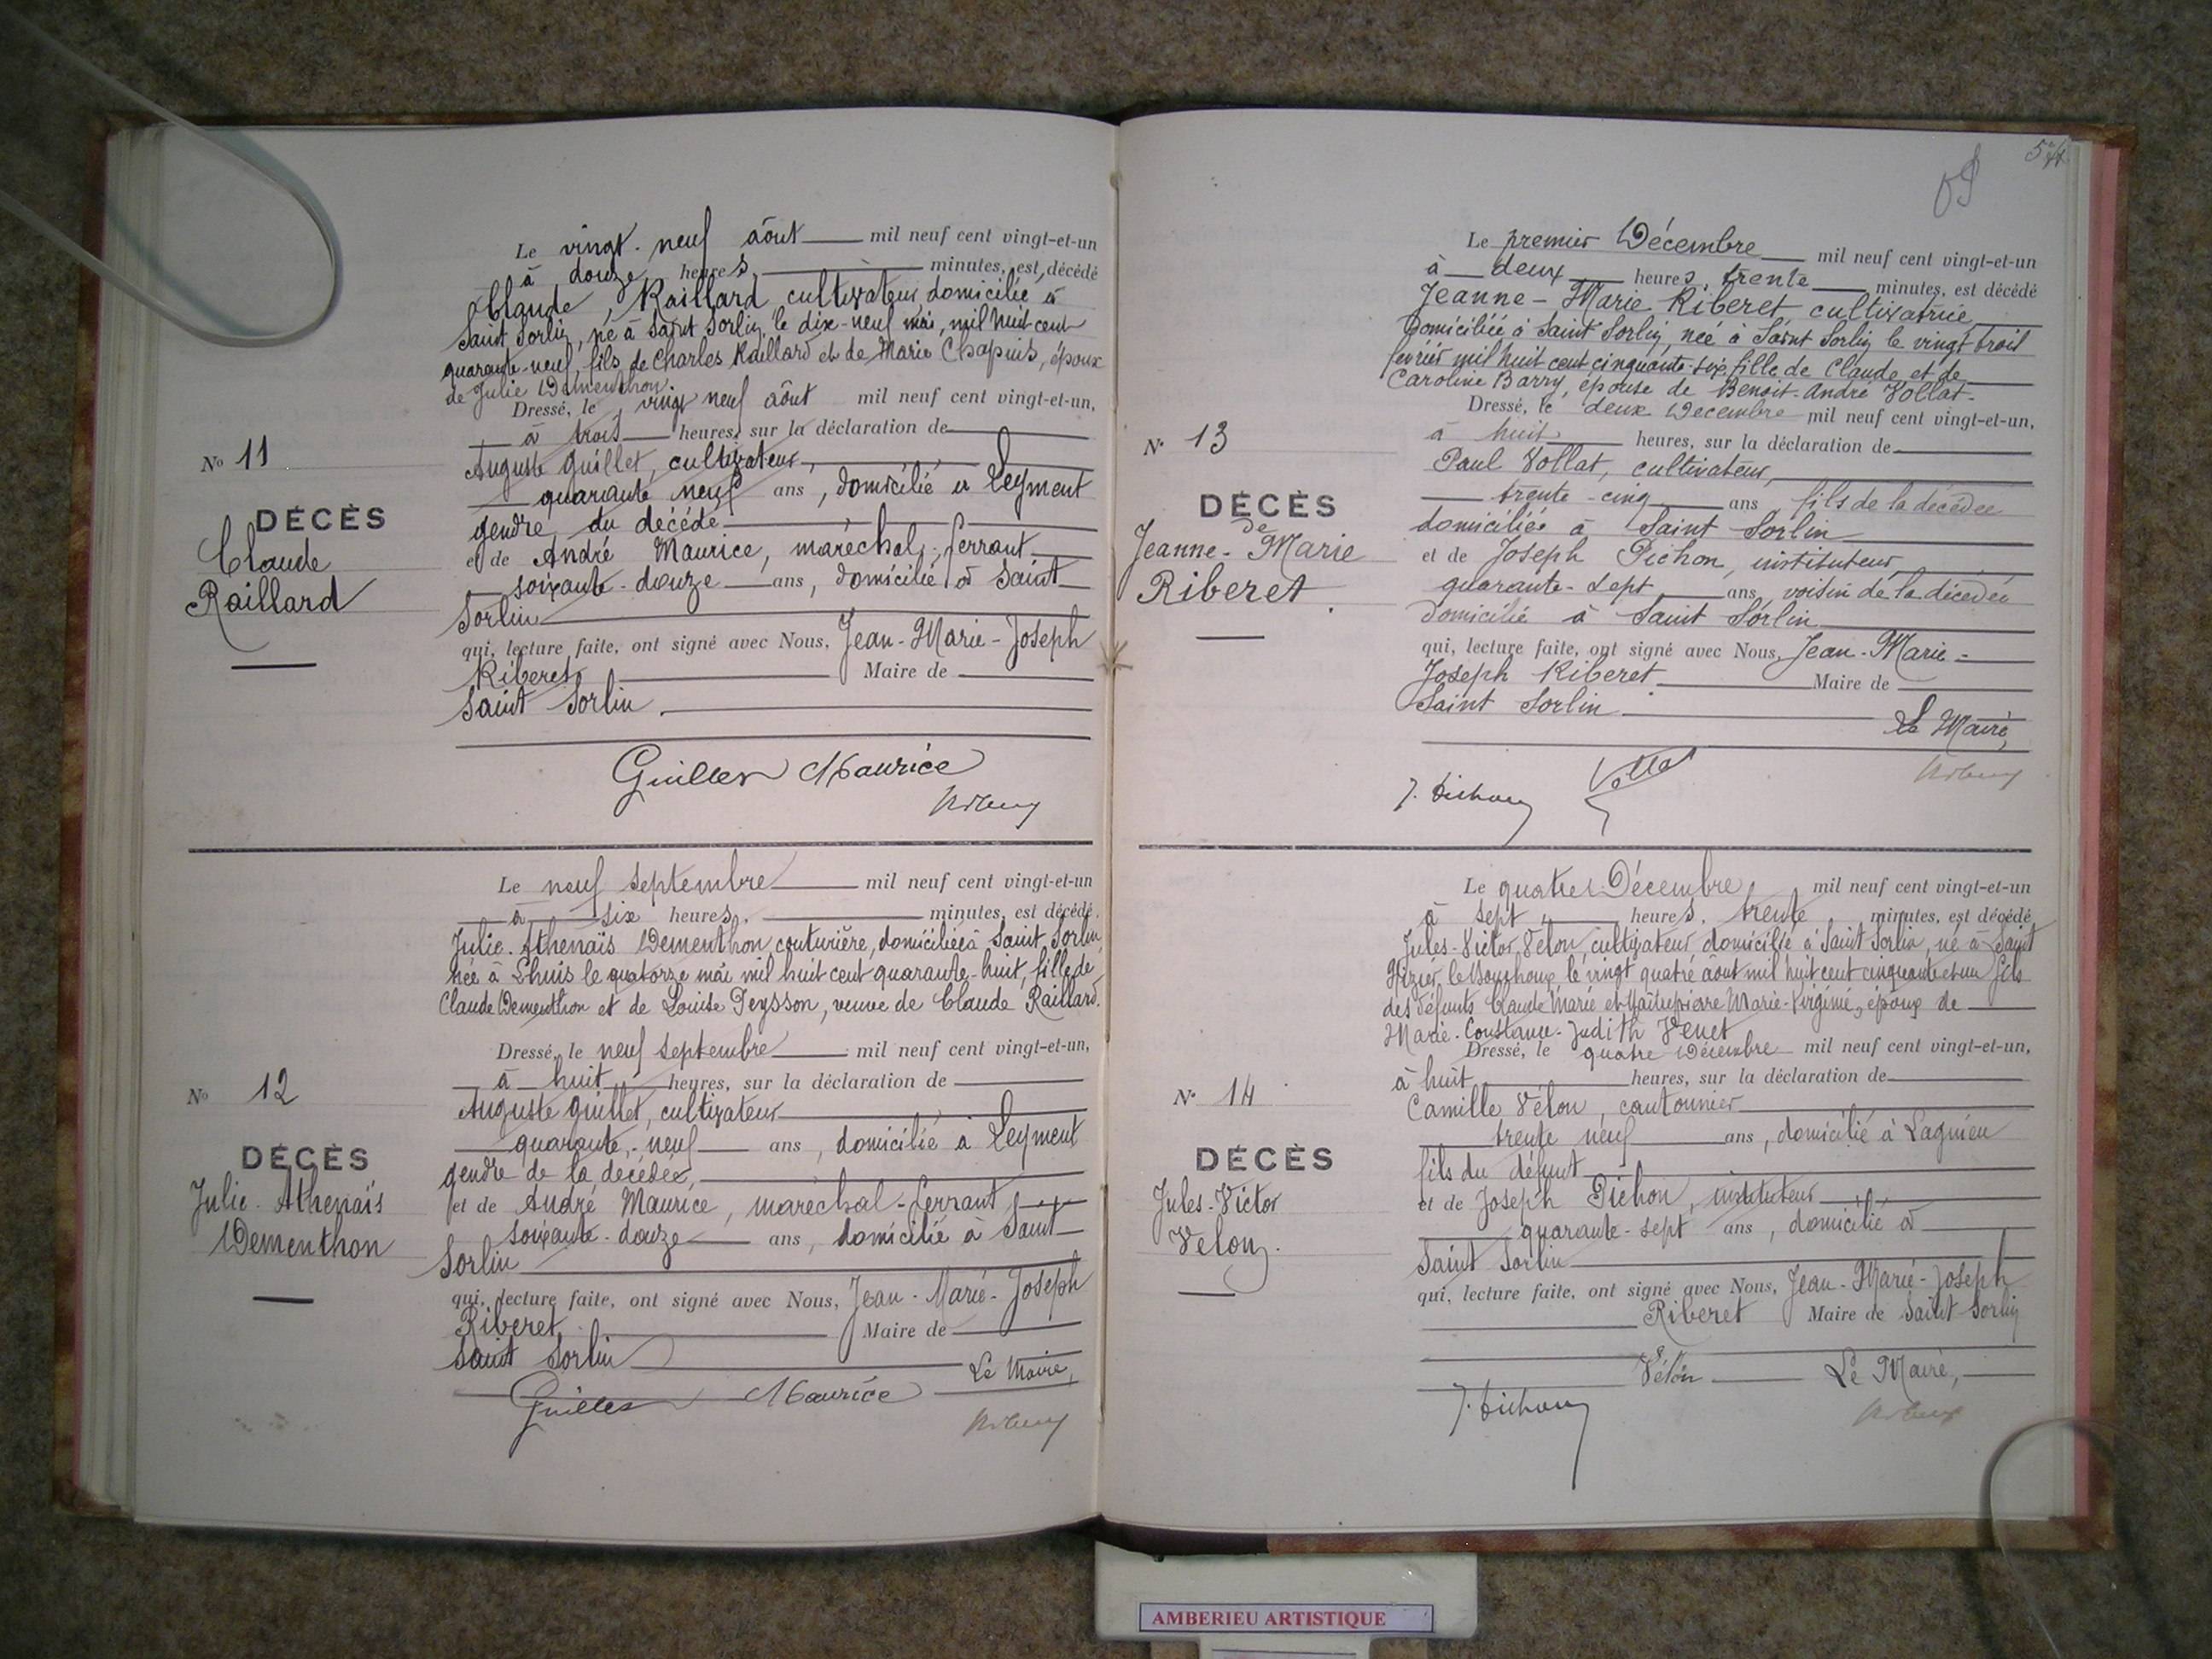 Le vingt-neuf août mil neuf cent vingt-et-un
à douze heures, minutes, est décédé
Claude Raillard cultivateur domicilié à
Saint Sorlin, né à Saint Sorlin le dix-neuf mai, mil huit cent
quarante-neuf, fils de Charles Raillard et de Marie Chapuis, époux
de Julie Dementhon.
Dressé, le vingt neuf août mil neuf cent vingt-et-un,
à trois heures, sur la déclaration de
Auguste Guillet, cultivateur,
quarante neuf ans, domicilié à Leyment
gendre du décédé
et de André Maurice, maréchal-ferrant
soixante-douze ans, domicilié à Saint
Sorlin
qui, lecture faite, ont signé avec Nous, Jean-Marie-Joseph
Riberet Maire de
Saint Sorlin.
Guillet Maurice
Riberet
No 11
DÉCÈS
Claude
Raillard
Le neuf septembre mil neuf cent vingt-et-un
à six heures, minutes, est décédé,
Julie-Athenaïs Dementhon couturière, domiciliée à Saint Sorlin,
née à Lhuis le quatorze mai mil huit cent quarante-huit, fille de
Claude Dementhon et de Louise Peysson, veuve de Claude Raillard.
Dressé, le neuf septembre mil neuf cent vingt-et-un,
à huit heures, sur la déclaration de
Auguste Guillet, cultivateur
quarante-neuf ans, domicilié à Leyment
gendre de la décédée,
et de André Maurice, maréchal-ferrant,
soixante-douze ans, domicilié à Saint
Sorlin
qui, lecture faite, ont signé avec Nous, Jean-Marie-Joseph
Riberet Maire de
Saint Sorlin
Le Maire,
Guillet Maurice
Riberet
No 12
DÉCÈS
Julie-Athenaïs
Dementhon
54
Le premier Décembre mil neuf cent vingt-et-un
à deux heures, trente minutes, est décédé
Jeanne-Marie Riberet cultivatrice
domiciliée à Saint Sorlin, née à Saint Sorlin le vingt trois
février mil huit cent cinquante-six fille de Claude et de
Caroline Barry, épouse de Benoit-André Vollat.
Dressé, le deux Décembre mil neuf cent vingt-et-un,
à huit heures, sur la déclaration de
Paul Vollat, cultivateur,
trente-cinq ans fils de la décédée
domicilié à Saint Sorlin
et de Joseph Pichon, instituteur
quarante-sept ans, voisin de la décédée
domicilié à Saint Sorlin
qui, lecture faite, ont signé avec Nous, Jean-Marie-
Joseph Riberet Maire de
Saint Sorlin.
Le Maire,
J. Pichon Vollat
Riberet
No 13
DÉCÈS
de
Jeanne-Marie
Riberet.
Le quatre Décembre mil neuf cent vingt-et-un
à sept heures, trente minutes, est décédé
Jules-Victor Velon cultivateur domicilié à Saint Sorlin, né à Saint
Nizier le Bouchoux le vingt quatre août mil huit cent cinquante et un fils
des défunts Claude Marie et Marie-Virginie, époux de
Marie-Constance-Judith Venet
Dressé, le quatre Décembre mil neuf cent vingt-et-un,
à huit heures, sur la déclaration de
Camille Vélon, cantonnier
trente neuf ans, domicilié à Lagnieu
fils du défunt
et de Joseph Pichon, instituteur
quarante-sept ans, domicilié à
Saint Sorlin
qui, lecture faite, ont signé avec Nous, Jean-Marie-Joseph
Riberet Maire de Saint Sorlin
Vélon Le Maire,
J. Pichon
Riberet
No 14
DÉCÈS
Jules-Victor
Velon.
AMBERIEU ARTISTIQUE